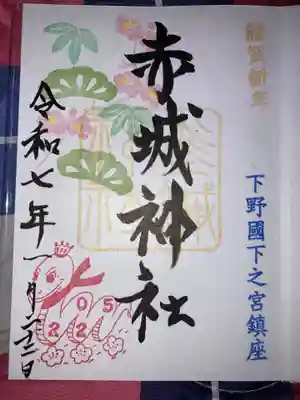 謹賀新年
下野國下之宮鎮座
赤城神社
令和七年一月二三日
2025